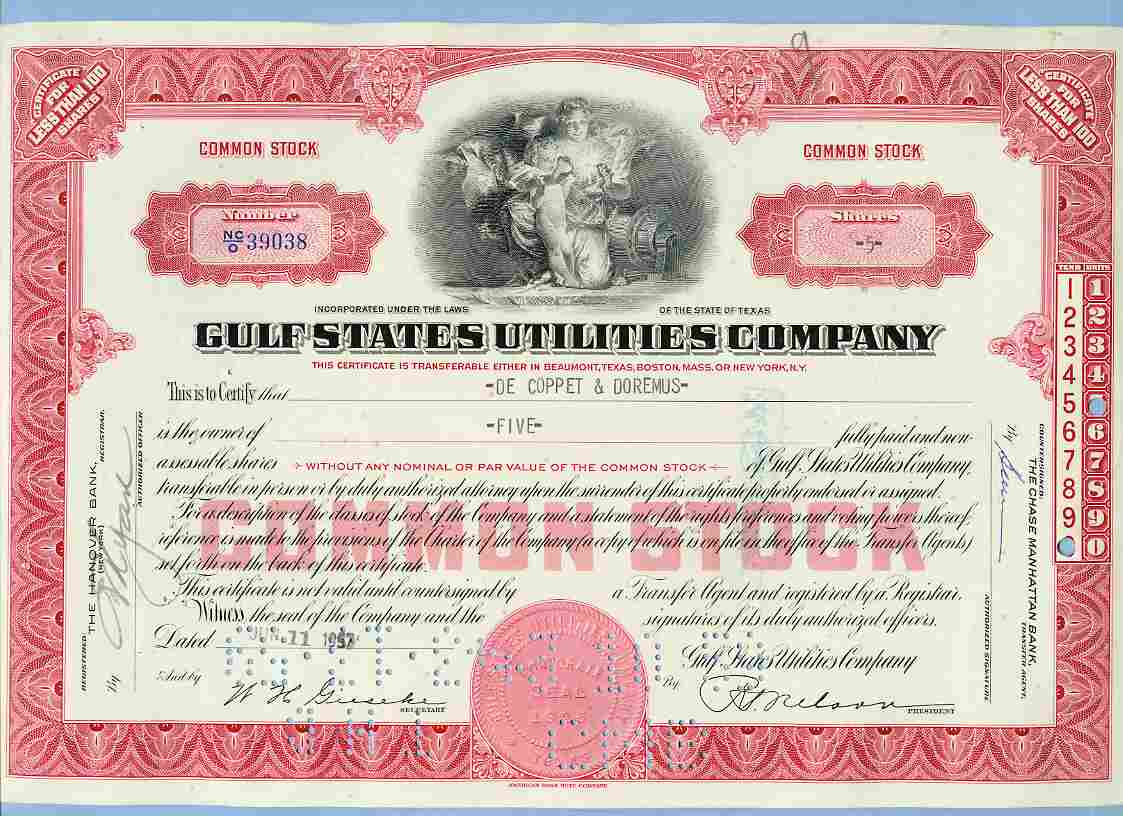 CERTIFICATE
FOR
LESS THAN 100
SHARES
CERTIFICATE
FOR
LESS THAN 100
SHARES
COMMON STOCK
COMMON STOCK
Number
NC/O 39038
Shares
-5-
INCORPORATED UNDER THE LAWS OF THE STATE OF TEXAS
GULF STATES UTILITIES COMPANY
THIS CERTIFICATE IS TRANSFERABLE EITHER IN BEAUMONT, TEXAS, BOSTON, MASS. OR NEW YORK, N.Y.
This is to Certify that -DE COPPET & DOREMUS-
is the owner of -FIVE- fully paid and non-
assessable shares WITHOUT ANY NOMINAL OR PAR VALUE OF THE COMMON STOCK of Gulf States Utilities Company,
transferable in person or by duly authorized attorney upon the surrender of this certificate properly endorsed or assigned.
For a description of the classes of stock of the Company and a statement of the rights, preferences and voting powers thereof,
reference is made to the provisions of the Charter of the Company (a copy of which is on file in the office of the Transfer Agents)
set forth on the back of this certificate.
COMMON STOCK
This certificate is not valid until countersigned by a Transfer Agent and registered by a Registrar.
Witness the seal of the Company and the signatures of its duly authorized officers.
Dated JUN. 11 1957
Gulf States Utilities Company
And by
W H Giesecke
SECRETARY
SEAL
By
R S Nelson
PRESIDENT
REGISTERED
THE HANOVER BANK,
(NEW YORK)
REGISTRAR,
By
AUTHORIZED OFFICER
COUNTERSIGNED:
THE CHASE MANHATTAN BANK,
TRANSFER AGENT,
By
AUTHORIZED SIGNATURE
TENS UNITS
1 1
2 2
3 3
4 4
5
6 6
7 7
8 8
9 9
0
AMERICAN BANK NOTE COMPANY